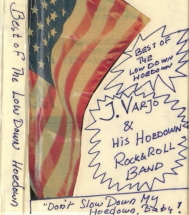 Best of The Low Down Hoedown
BEST OF
THE
LOW DOWN
HOEDOWN
J. VARJO
&
HIS HOEDOWN
ROCK & ROLL
BAND
"Don't Slow Down My
Hoedown, Baby"